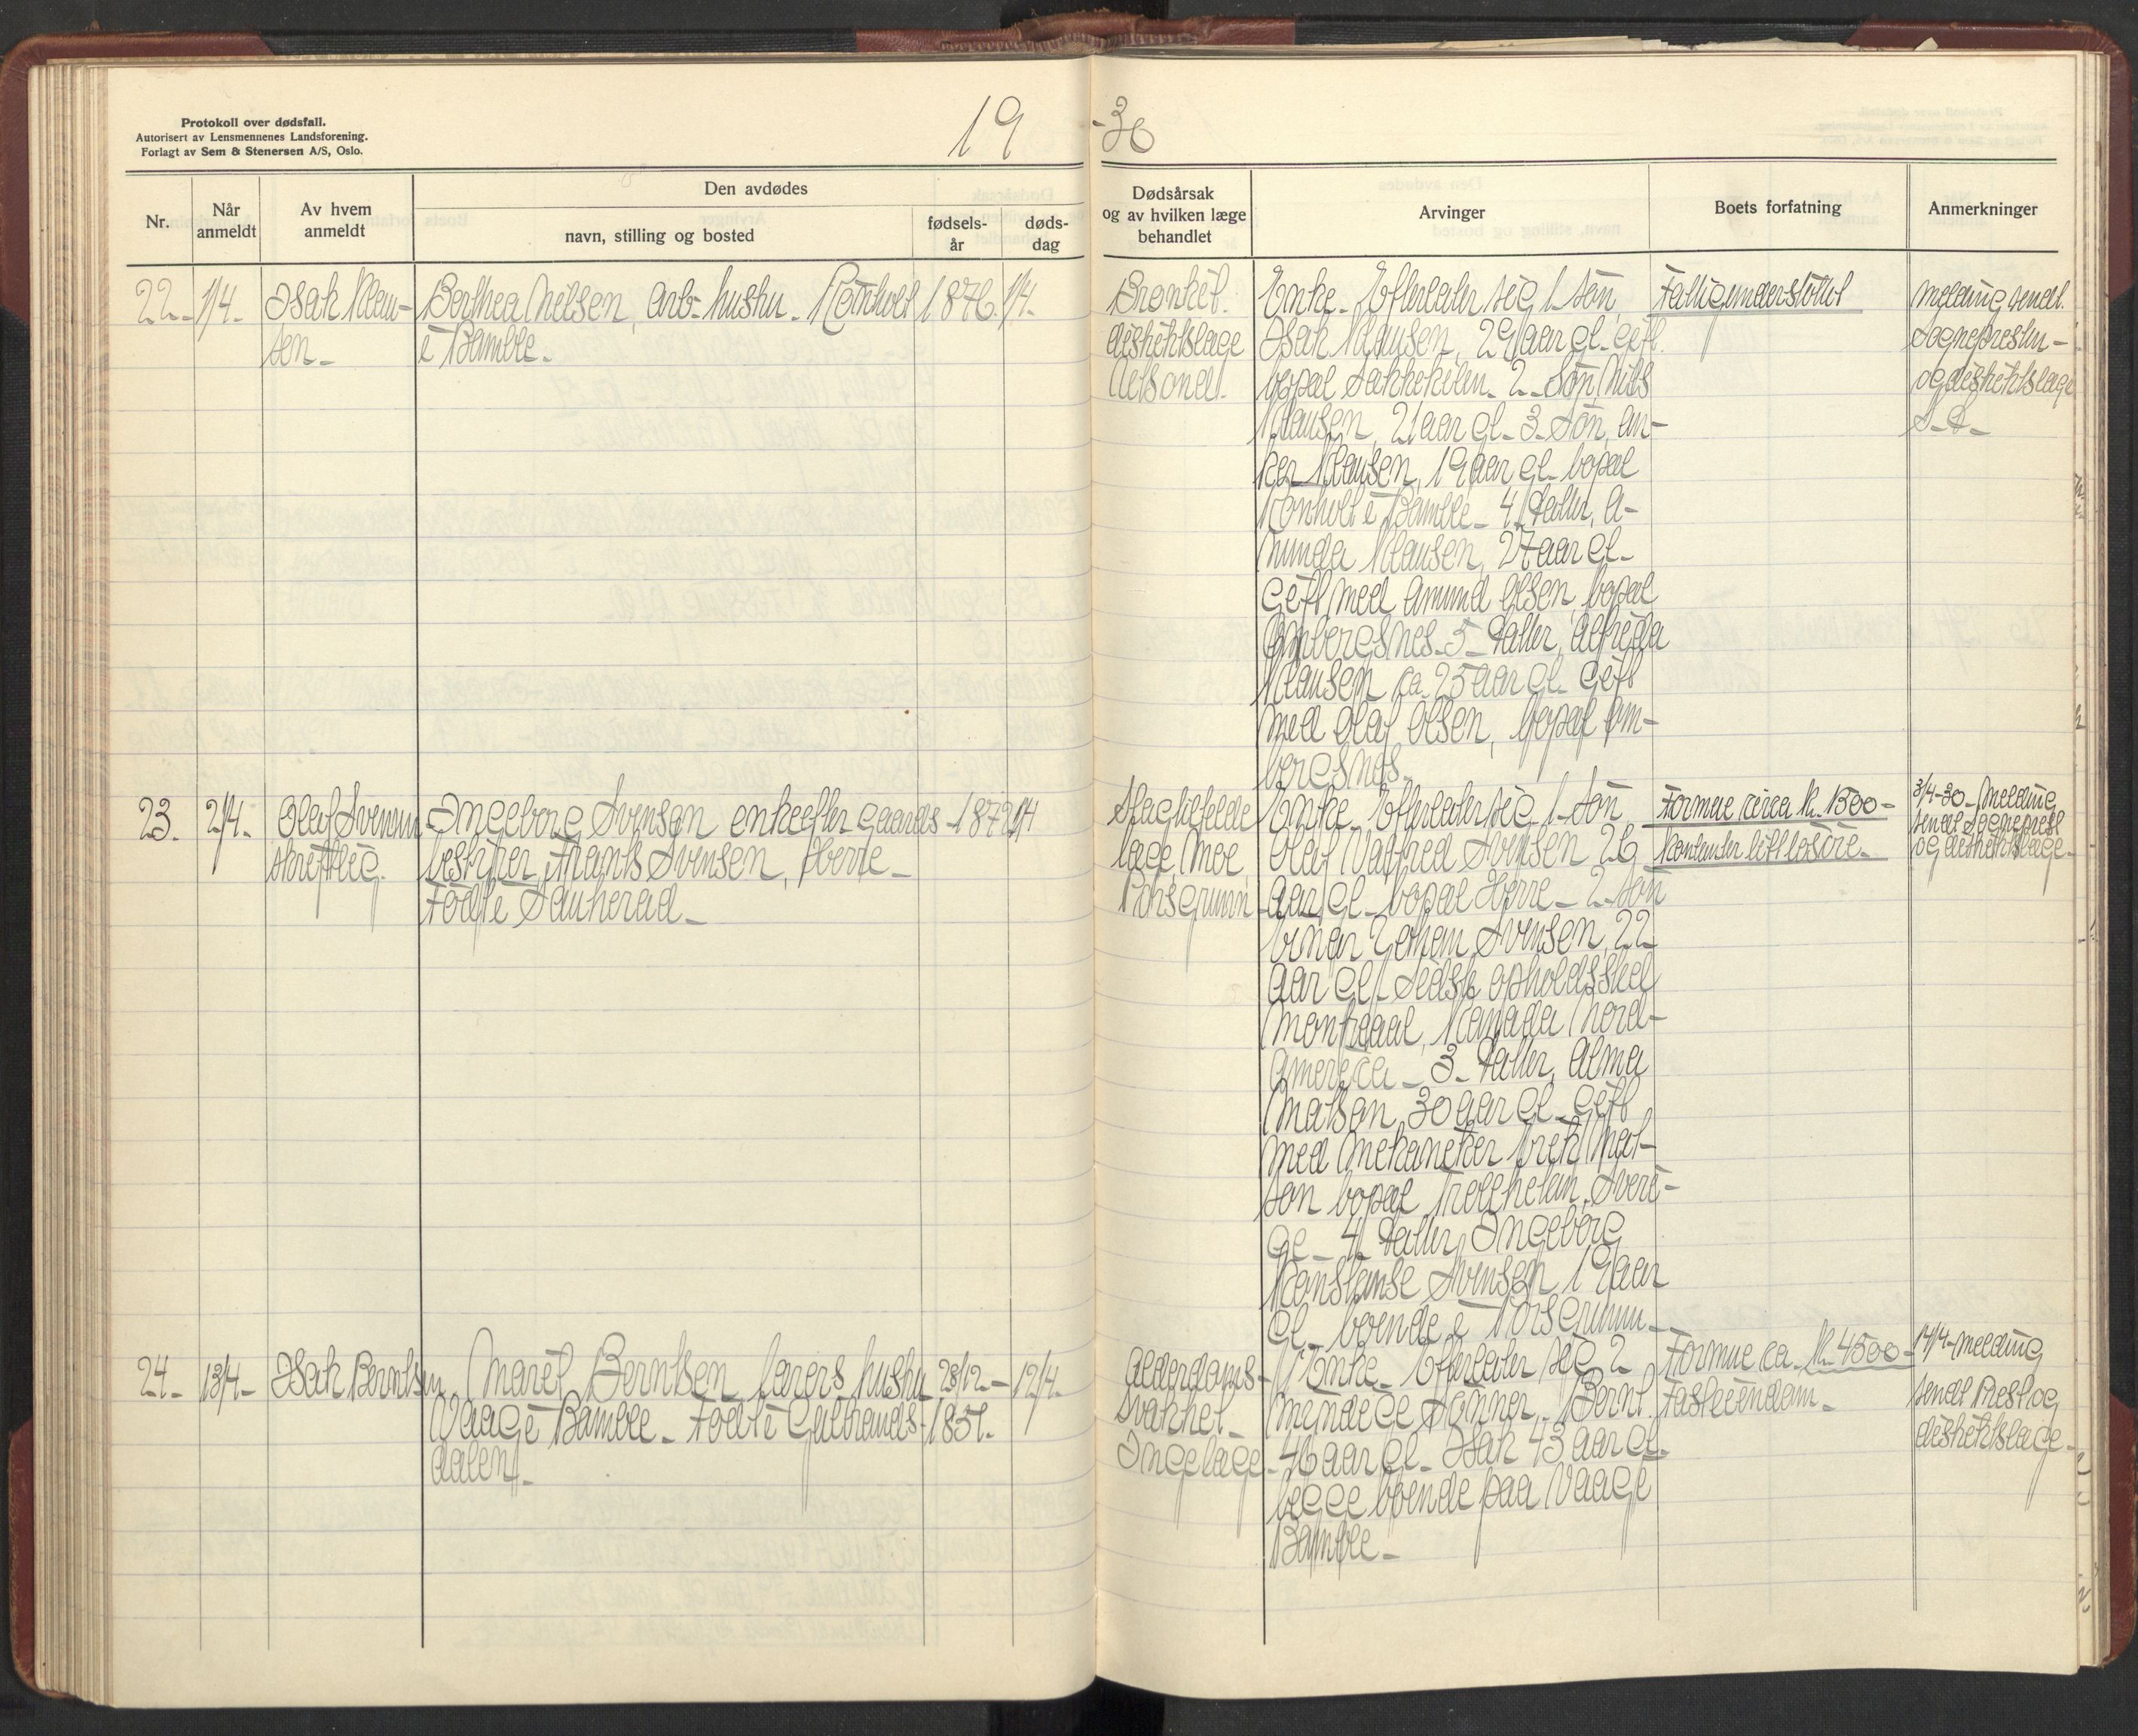 Protokoll over dødsfall.
Autorisert av Lensmennenes Landsforening.
Forlagt av Sem & Stenersen A/S, Oslo.
19 -30
Nr.
Når anmeldt
Av hvem anmeldt
Den avdødes
navn, stilling og bosted
fødsels-år
døds-dag
Dødsårsak og av hvilken læge behandlet
Arvinger
Boets forfatning
Anmerkninger
22-
1/4-
Isak Klau-
sen-
Berthea Nilsen, arb- hustru- Rønholt
i Bamble-
1876
1/4-
Bronkit.
distriktslæge
Enke- Efterlater sig 1- søn,
Isak Klausen, 29 aar gl- gift.
bopæl Stokkekilen- 2- søn, Nils
Klausen, 21 aar gl- 3- søn, An-
ker Klausen, 19 aar gl- bopæl
Rønholt i Bamble- 4 datter, A-
Klausen, 27 aar gl-
gift med Amund Olsen, bopæl
Omboresnes- 5- datter, Alfrida
Klausen ca 25 aar gl- gift
med Olaf Olsen, bopæl Om-
boresnes-
Fattigunderstøttet
Melding sendt.
Sogneprest
og distriktslæge
S-D-
23.
2/4-
Olaf Svensen
skriftlig.
Ingeborg Svensen enke efter gaards-
bestyrer, Frants Svensen, Herre-
Født i Sauherad-
1872
1/4
Slagtilfelde
læge Moe,
Porsgrunn
Enke- Efterlater sig 1- søn,
Olaf Valfred Svensen 26
aar gl- bopæl Herre- 2- søn
Johan Svensen, 22
aar gl- sidste opholdssted
Montreaal, Kanada Nord-
amerika- 3- datter, Alma
Matson, 30 aar gl- gift
med mekaniker Erik Mat-
son bopæl Trollhetan, Sveri-
ge- 4- datter, Ingeborg
Konstanse Svensen 19 aar
gl- boende i Porsgrunn-
Formue circa kr. 1500-
Kontanter litt løsøre-
3/4-30- Melding
sendt Sogneprest
og distriktslæge-
24-
13/4-
Isak Berntsen,
Marit Berntsen lærers hustru
Vaage Bamble- Født i Gulbrands-
dalen-
23/12-
1851.
12/4-
Alderdoms-
svakhet-
Ingen læge-
Enke- Efterlater sig 2
myndige sønner- Bernt
46 aar gl- Isak 43 aar gl-
begge boende paa Vaage
Bamble-
Formue ca- kr- 4500-
Fast eiendom-
14/4- Melding
sendt Prest og
distriktslæge-